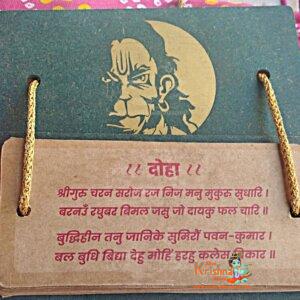 ।। दोहा ।।
श्रीगुरु चरन सरोज रज निज मनु मुकुरु सुधारि ।
बरनउँ रघुबर बिमल जसु जो दायकु फल चारि ॥
बुद्धिहीन तनु जानिके सुमिरौं पवन-कुमार ।
बल बुधि बिद्या देहु मोहिं हरहु कलेस बिकार ॥
Krishna